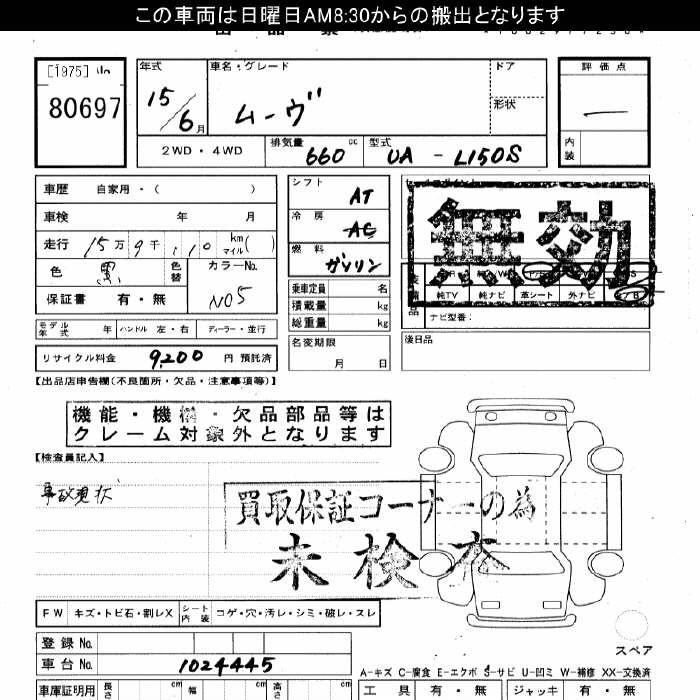 この車両は日曜日AM8:30からの搬出となります
[1975] 山
80697
年式 15/6月
車名・グレード ムーヴ
ドア
形状
評価点 —
内装
2WD・4WD
排気量 660 cc
型式 UA - L150S
車歴 自家用・( )
車検 年 月
走行 15万9千110 km マイル( )
色 黒 色替
カラーNo. N05
保証書 有・無
モデル年式 年 ハンドル 左・右 ディーラー・並行
リサイクル料金 9,200 円 預託済
シフト AT
冷房 AC
燃料 ガソリン
乗車定員 名
積載量 kg
総重量 kg
名変期限
月 日
無効
純TV 純ナビ 革シート 外ナビ
ナビ型番:
後日品
【出品店申告欄(不良箇所・欠品・注意事項等)】
機能・機構・欠品部品等は
クレーム対象外となります
【検査員記入】
事故現状
買取保証コーナーの為
未検査
FW キズ・トビ石・割レX シート内装 コゲ・穴・汚レ・シミ・破レ・スレ
登録No.
車台No. 1024445
スペア
A-キズ C-腐食 E-エクボ S-サビ U-凹ミ W-補修 XX-交換済
車庫証明用 長さ cm 幅 cm 高さ cm
工具 有・無 ジャッキ 有・無